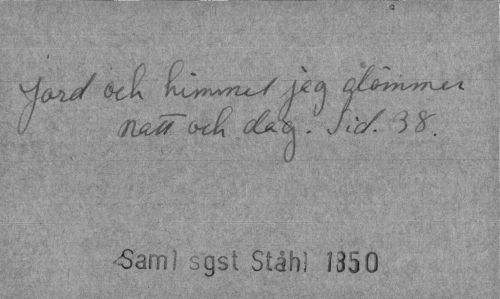 Jord och himmel jeg glömmer
natt och dag. Sid. 38.
Saml sgst Ståhl 1850